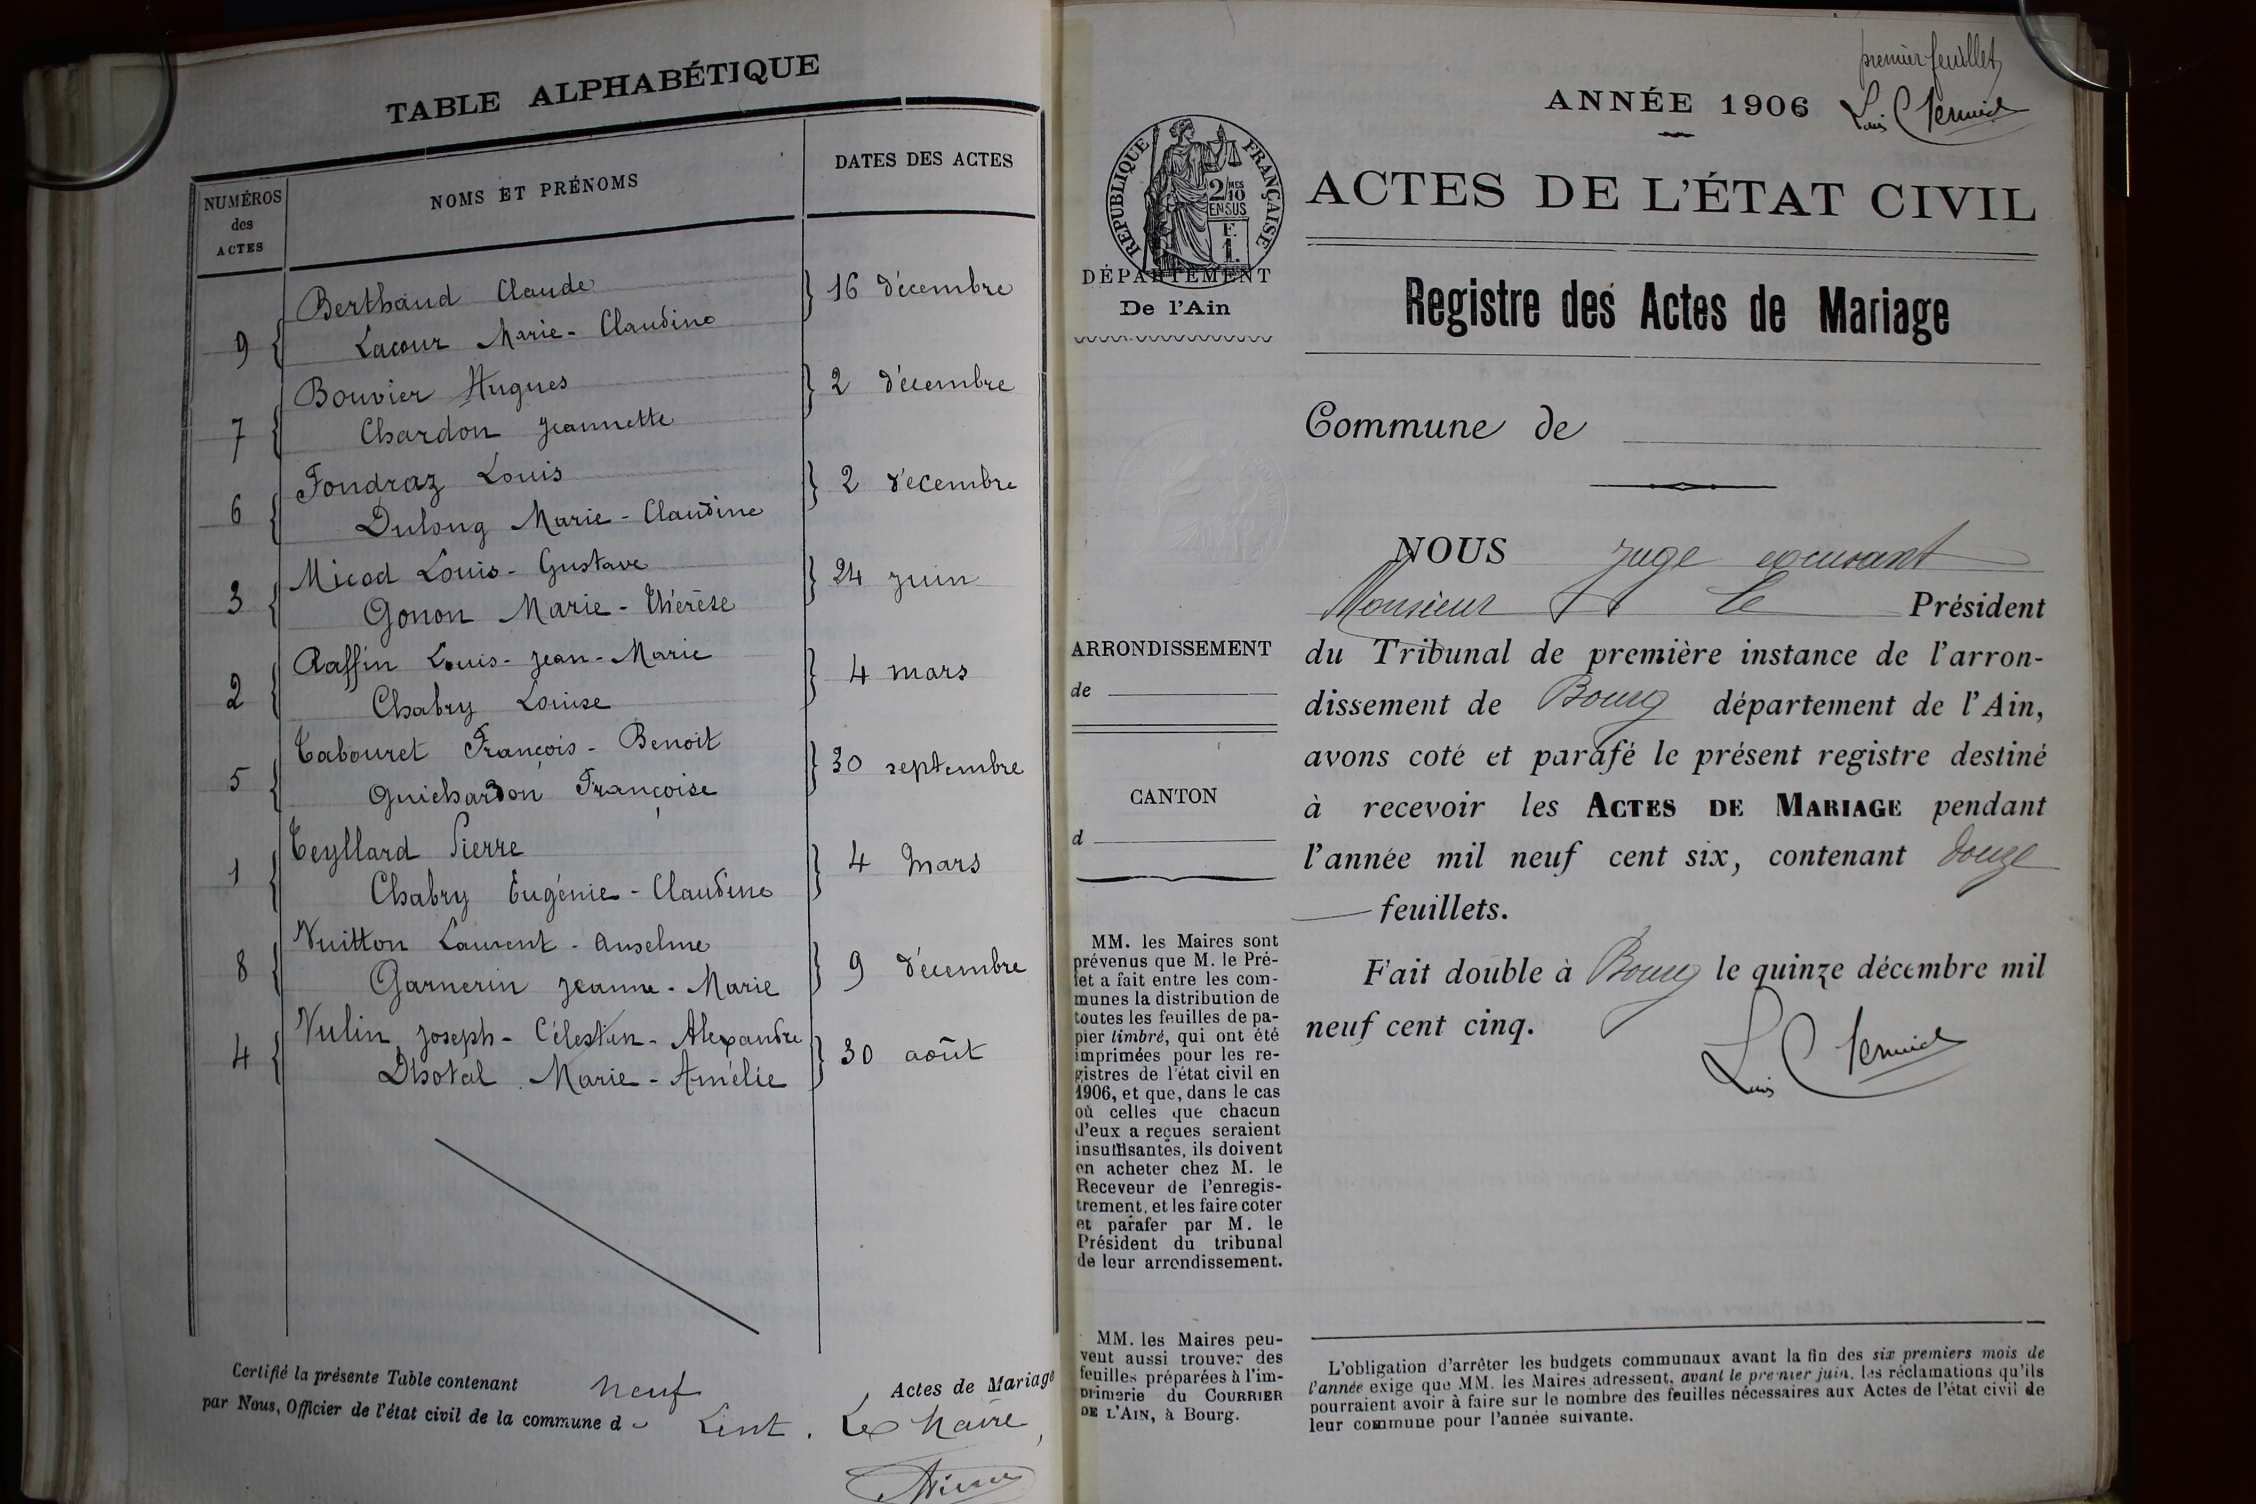 TABLE ALPHABÉTIQUE
NUMÉROS
des
ACTES
NOMS ET PRÉNOMS
DATES DES ACTES
Berthaud Claude
16 décembre
9
Lacour Marie-Claudine
Bouvier Hugues
2 décembre
7
Chardon Jeannette
Fondraz Louis
2 décembre
6
Dulong Marie-Claudine
Micod Louis-Gustave
24 juin
3
Gonon Marie-Thérèse
Raffin Louis-Jean-Marie
4 mars
2
Chabry Louise
Tabouret François-Benoit
30 septembre
5
Guichardon Françoise
Teyllard Pierre
4 Mars
1
Chabry Eugénie-Claudine
Vuitton Laurent-Anselme
9 décembre
8
Garnerin Jeanne-Marie
Vulin Joseph-Célestin-Alexandre
30 août
4
Dhotal Marie-Amélie
Certifié la présente Table contenant neuf Actes de Mariage
par Nous, Officier de l'état civil de la commune de Lent. Le Maire,
premier feuillet
ANNÉE 1906
RÉPUBLIQUE FRANÇAISE
2 MES
10
EN SUS
F.
1.
ACTES DE L'ÉTAT CIVIL
DÉPARTEMENT
De l'Ain
Registre des Actes de Mariage
Commune de
NOUS juge excusant
Monsieur Le Président
du Tribunal de première instance de l'arron-
dissement de Bourg département de l'Ain,
avons coté et parafé le présent registre destiné
à recevoir les ACTES DE MARIAGE pendant
l'année mil neuf cent six, contenant douze
feuillets.
Fait double à Bourg le quinze décembre mil
neuf cent cinq.
ARRONDISSEMENT
de
CANTON
d
MM. les Maires sont
prévenus que M. le Pré-
fet a fait entre les com-
munes la distribution de
toutes les feuilles de pa-
pier timbré, qui ont été
imprimées pour les re-
gistres de l'état civil en
1906, et que, dans le cas
où celles que chacun
d'eux a reçues seraient
insuffisantes, ils doivent
en acheter chez M. le
Receveur de l'enregis-
trement, et les faire coter
et parafer par M. le
Président du tribunal
de leur arrondissement.
MM. les Maires peu-
vent aussi trouver des
feuilles préparées à l'im-
primerie du COURRIER
DE L'AIN, à Bourg.
L'obligation d'arrêter les budgets communaux avant la fin des six premiers mois de
l'année exige que MM. les Maires adressent, avant le premier juin, les réclamations qu'ils
pourraient avoir à faire sur le nombre des feuilles nécessaires aux Actes de l'état civil de
leur commune pour l'année suivante.